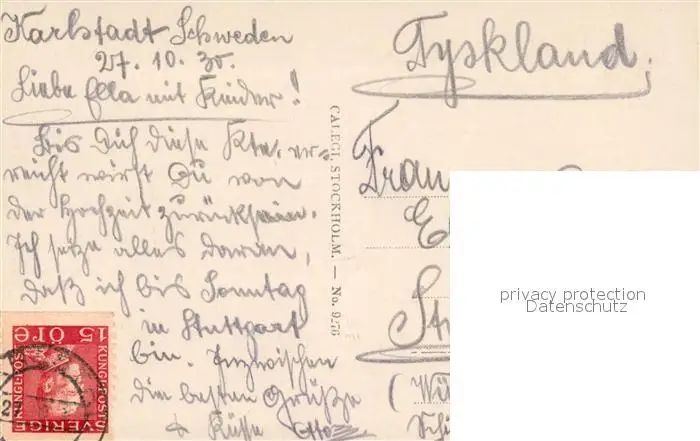 Karlstadt Schweden
27. 10. 30.
Liebe Ella mit Kinder!
Bis Dich diese Kte. er=
reicht wirst Du von
der Hochzeit zurück sein.
Ich setze alles daran,
daß ich bis Sonntag
in Stuttgart
bin. Inzwischen
die besten Grüße
& Küsse Otto
CALEGI, STOCKHOLM. — No. 9276
Tyskland.
Frau
E
St
(Wü
Schi
privacy protection
Datenschutz
15 ÖRE
KUNGL·POST
SVERIGE